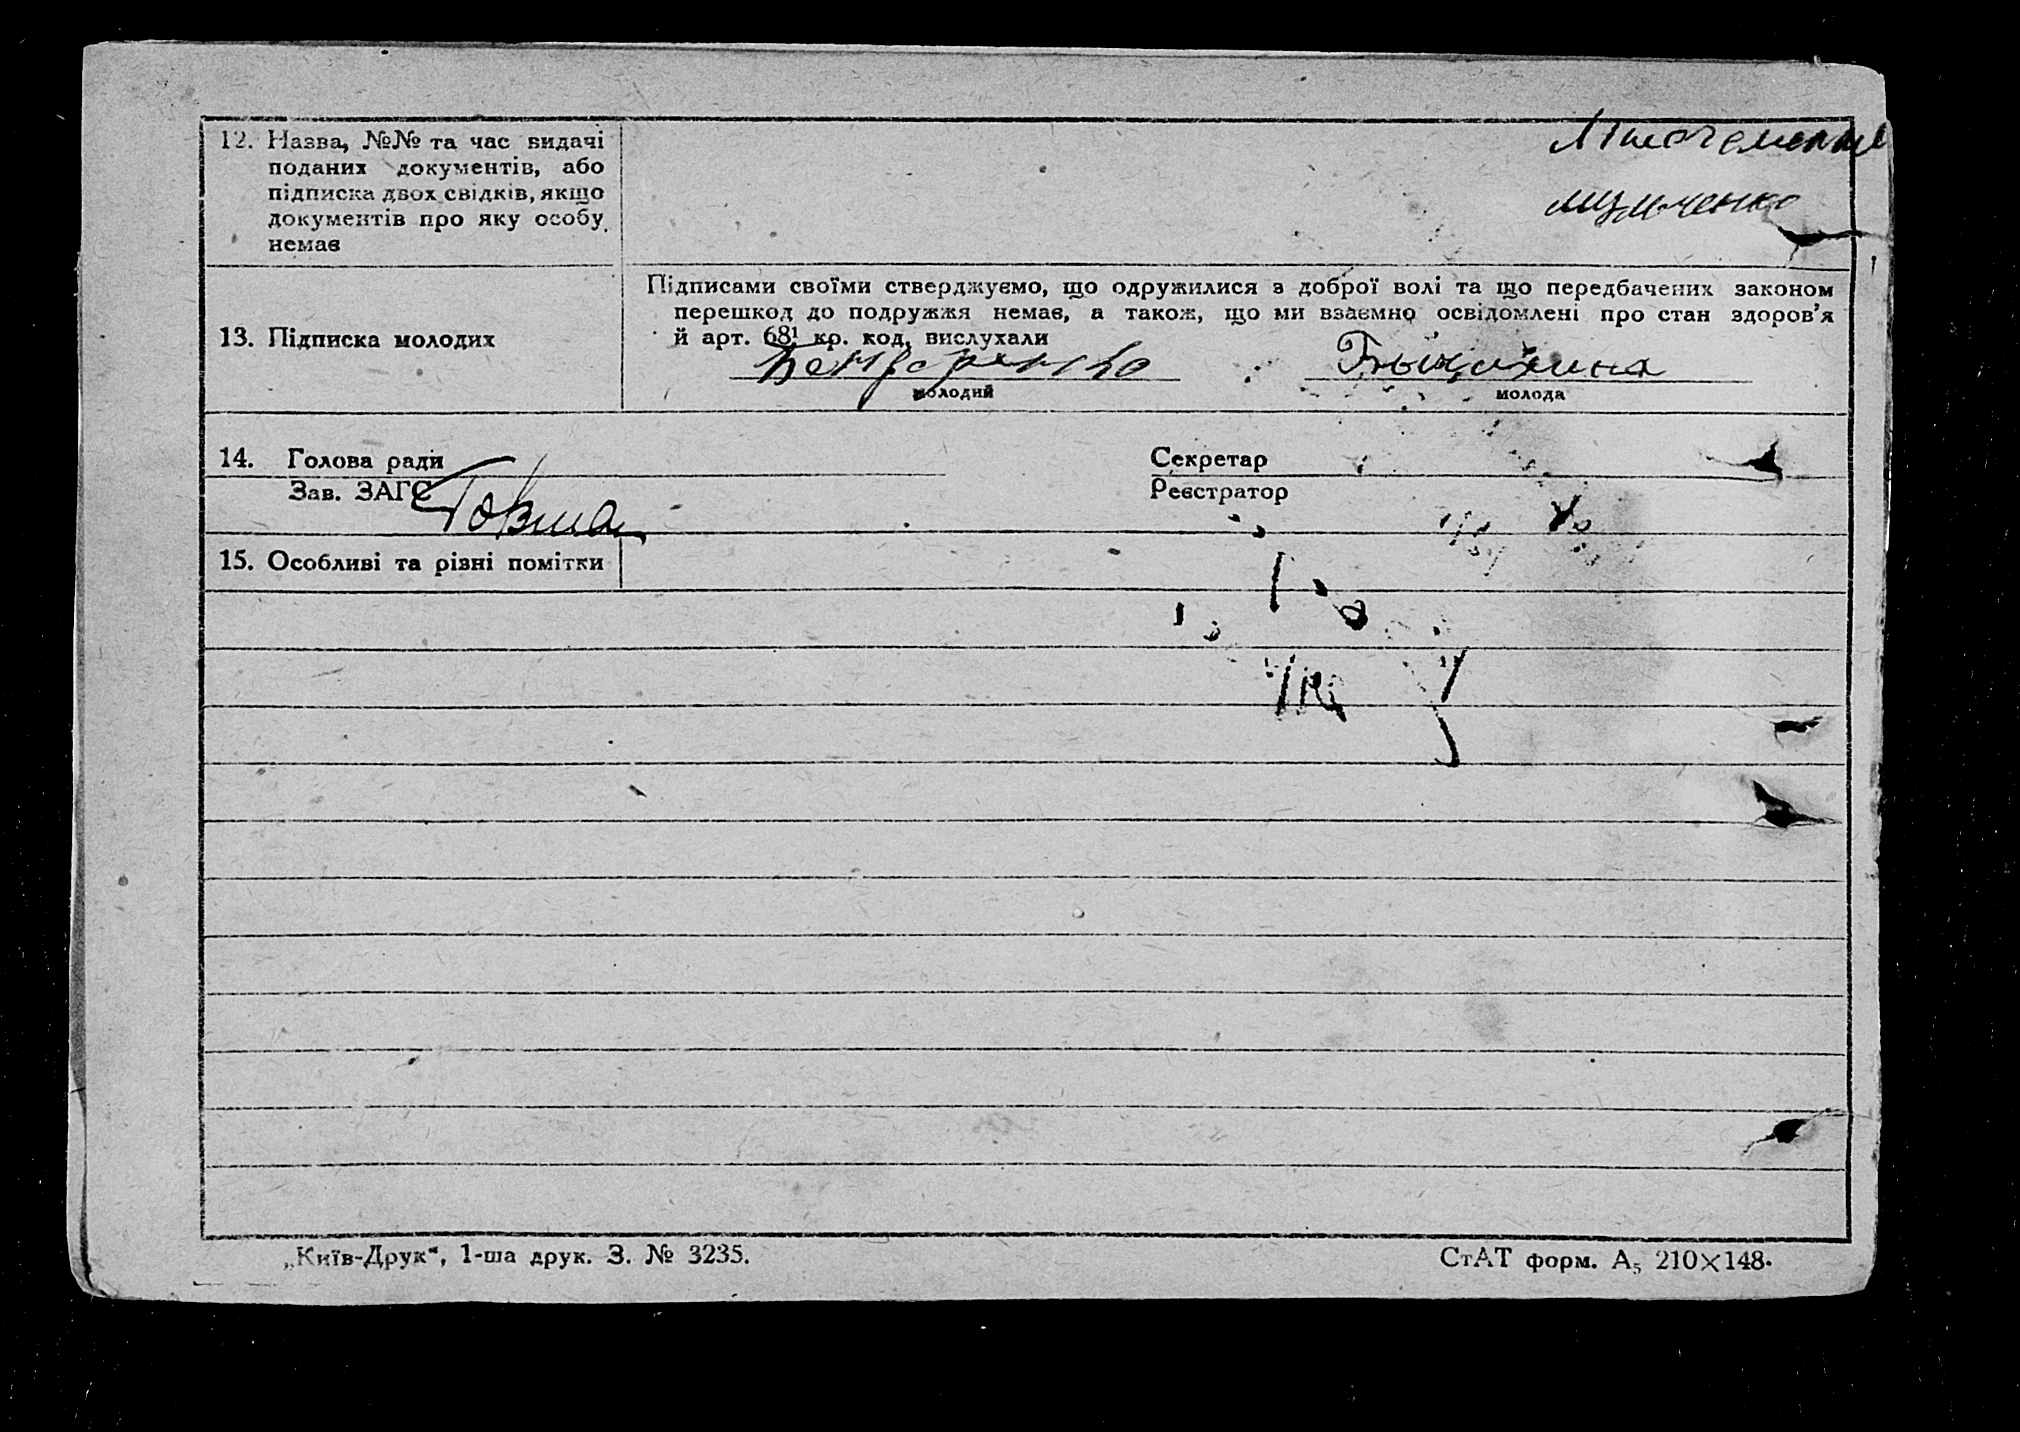 12. Назва, №№ та час видачі
поданих документів, або
підписка двох свідків, якщо
документів про яку особу
немає
13. Підписка молодих
Підписами своїми стверджуємо, що одружилися з доброї волі та що передбачених законом
перешкод до подружжя немає, а також, що ми взаємно освідомлені про стан здоров'я
й арт. 68¹ кр. код. вислухали
Бондаренко
молодий
молода
14. Голова ради
Секретар
Зав. ЗАГС
Реєстратор
15. Особливі та різні помітки
„Київ-Друк“, 1-ша друк. З. № 3235.
СтАТ форм. А₅ 210×148.